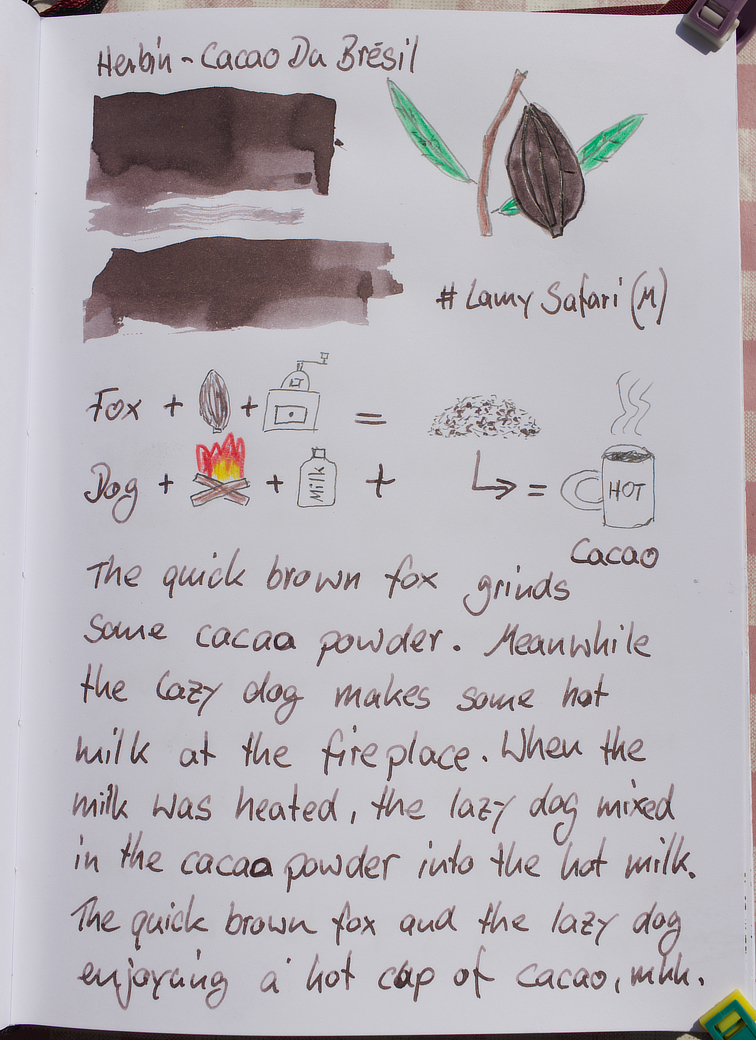 Herbin - Cacao Du Brésil
# Lamy Safari (M)
Fox + + =
Dog + + Milk + = HOT
Cacao
The quick brown fox grinds
some cacao powder. Meanwhile
the lazy dog makes some hot
milk at the fireplace. When the
milk was heated, the lazy dog mixed
in the cacao powder into the hot milk.
The quick brown fox and the lazy dog
enjoying a hot cup of cacao, mhh.